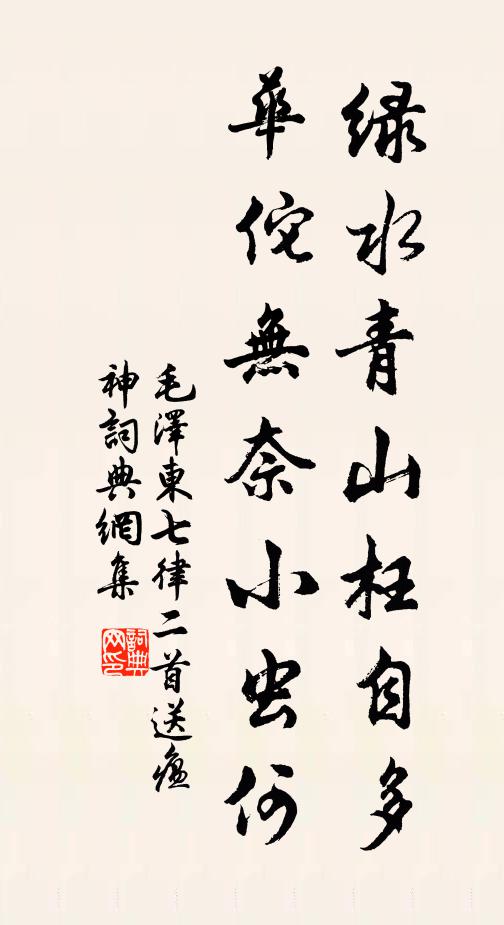 緑水青山枉自多
華佗無奈小虫何
毛澤東七律二首送瘟
神詞典網集
詞典
网印